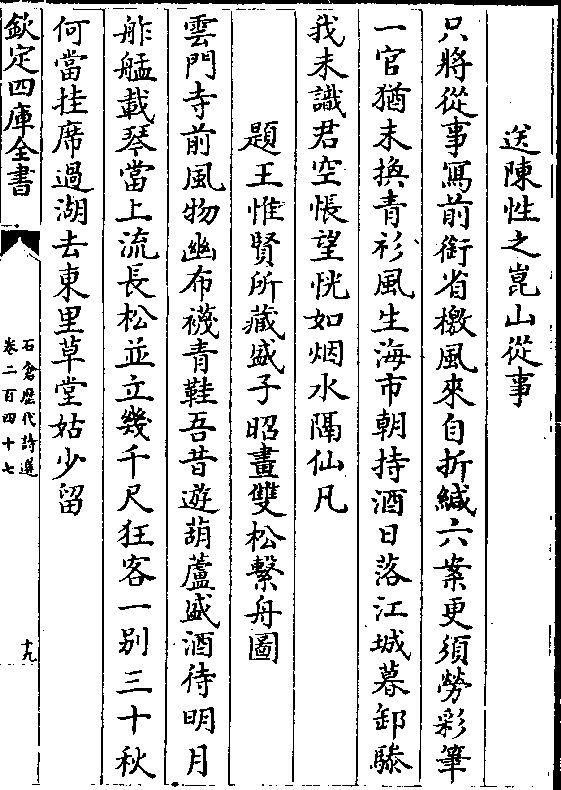 送陳性之崑山從事
只將從事寫前銜省檄風來自折緘六案更須勞彩筆
一官猶未換青衫風生海市朝持酒日落江城暮卸驂
我未識君空悵望恍如烟水隔仙凡
題王惟賢所藏盛子昭畫雙松繫舟圖
雲門寺前風物幽布襪青鞋吾昔遊葫蘆盛酒待明月
舴艋載琴當上流長松並立幾千尺狂客一別三十秋
何當挂席過湖去東里草堂姑少留
欽定四庫全書
石倉歷代詩選
卷二百四十七
十九